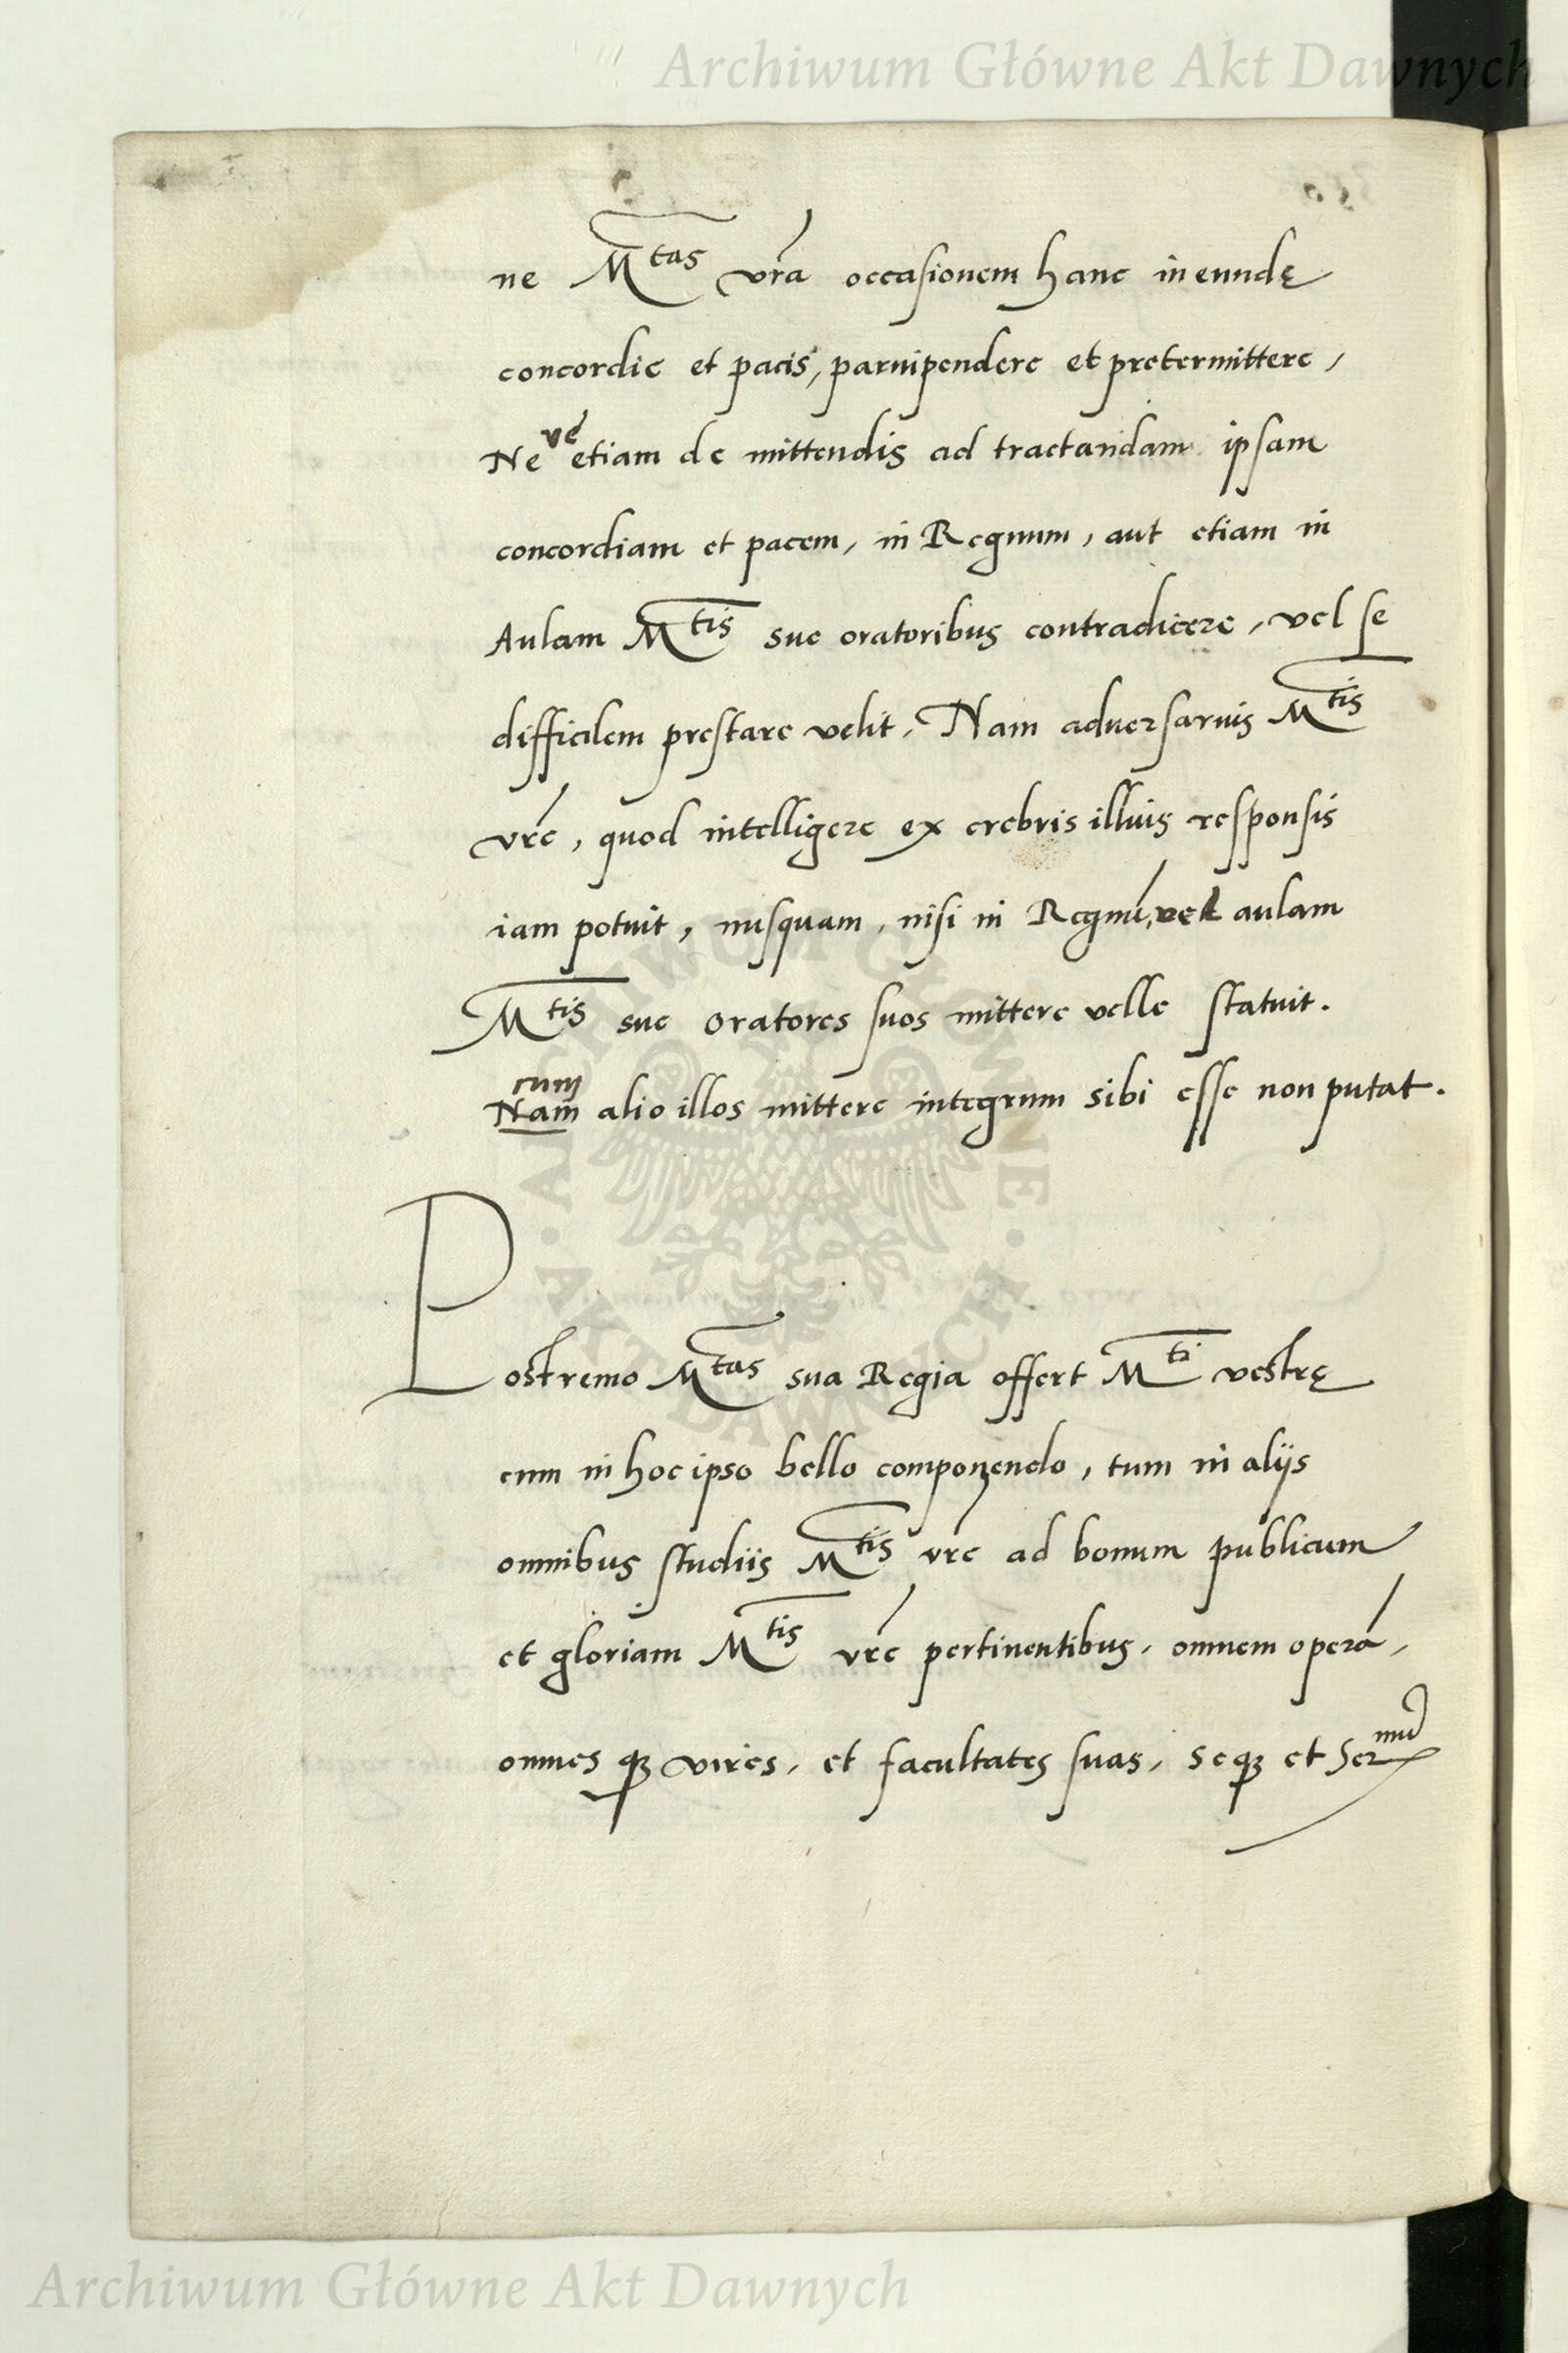 Archiwum Główne Akt Dawnych
ne Mtas vrã occasionem hanc ineundę
concordie et pacis, parvipendere et pretermittere,
Ne ve etiam de mittendis ad tractandam ipsam
concordiam et pacem, in Regnum, aut etiam in
Aulam Mtis sue oratoribus contradicere, vel se
difficilem prestare velit, Nam adversarius Mtis
vrẽ, quod intelligere ex crebris illius responsis
iam potuit, nusquam, nisi in Regnũ, vel aulam
Mtis sue oratores suos mittere velle statuit.
cum
Nam alio illos mittere integrum sibi esse non putat.
Postremo Mtas sua Regia offert Mti vestrę
cum in hoc ipso bello componendo, tum in alijs
omnibus studiis Mtis vrẽ ad bonum publicum
et gloriam Mtis vrẽ pertinentibus, omnem operã,
omnes qꝫ vires, et facultates suas, seqꝫ et Sermũ
ARCHIWUM GŁÓWNE · AKT DAWNYCH ·
Archiwum Główne Akt Dawnych